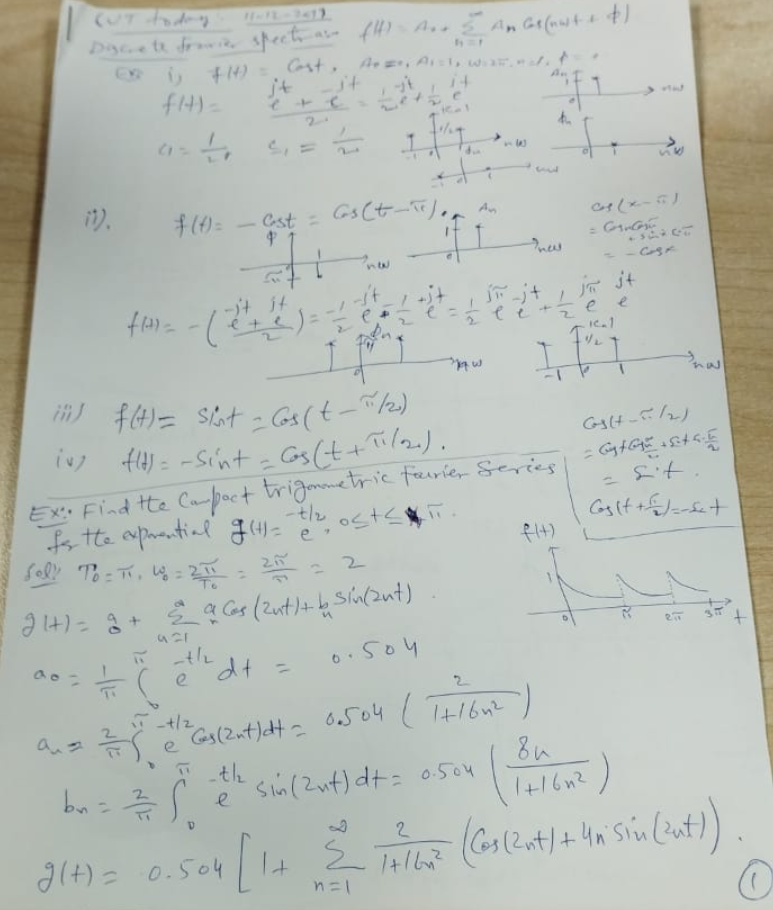 today 11-12-2019
Discrete fourier spectrum f(t) = A₀ + Σ_{n=1}^{∞} Aₙ Cos(nωt + ϕ)
Ex i, f(t) = Cost, A₀=0, A₁=1, n=1,
f(t) = (e^{jt} + e^{-jt})/2 = 1/2 e^{-jt} + 1/2 e^{jt}
Aₙ 1 0 nω
|cₙ| 1/2 nω
c₁ = 1/2, c₋₁ = 1/2
ϕₙ nω
-1 0 1 nω
ii). f(t) = - Cost = Cos(t-π).
Cos(x-π)
= - Cosx
ϕ 1 nω -π
Aₙ 1 0 nω
f(t) = - ((e^{-jt} + e^{jt})/2) = -1/2 e^{-jt} - 1/2 e^{+jt} = 1/2 e^{jπ} e^{-jt} + 1/2 e^{jπ} e^{jt}
ϕₙ π 0 nω
|cₙ| 1/2 -1 0 1 nω
iii) f(t) = Sint = Cos(t - π/2)
iv) f(t) = -Sint = Cos(t + π/2).
Cos(t - π/2)
= Sint.
Cos(t + π/2) = -Sint
Ex:- Find the Compact trigonometric fourier Series
for the exponential g(t) = e^{-t/2}, 0≤t≤π.
Sol:- T₀ = π, ω₀ = 2π/T₀ = 2π/π = 2
f(t) 1 0 π 2π 3π t
g(t) = a₀ + Σ_{n=1}^{∞} aₙ Cos(2nt) + bₙ Sin(2nt).
a₀ = 1/π ∫₀^π e^{-t/2} dt = 0.504
aₙ = 2/π ∫₀^π e^{-t/2} Cos(2nt)dt = 0.504 (2/(1+16n²))
bₙ = 2/π ∫₀^π e^{-t/2} sin(2nt)dt = 0.504 (8n/(1+16n²))
g(t) = 0.504 [1 + Σ_{n=1}^{∞} 2/(1+16n²) (Cos(2nt) + 4n Sin(2nt)).
1